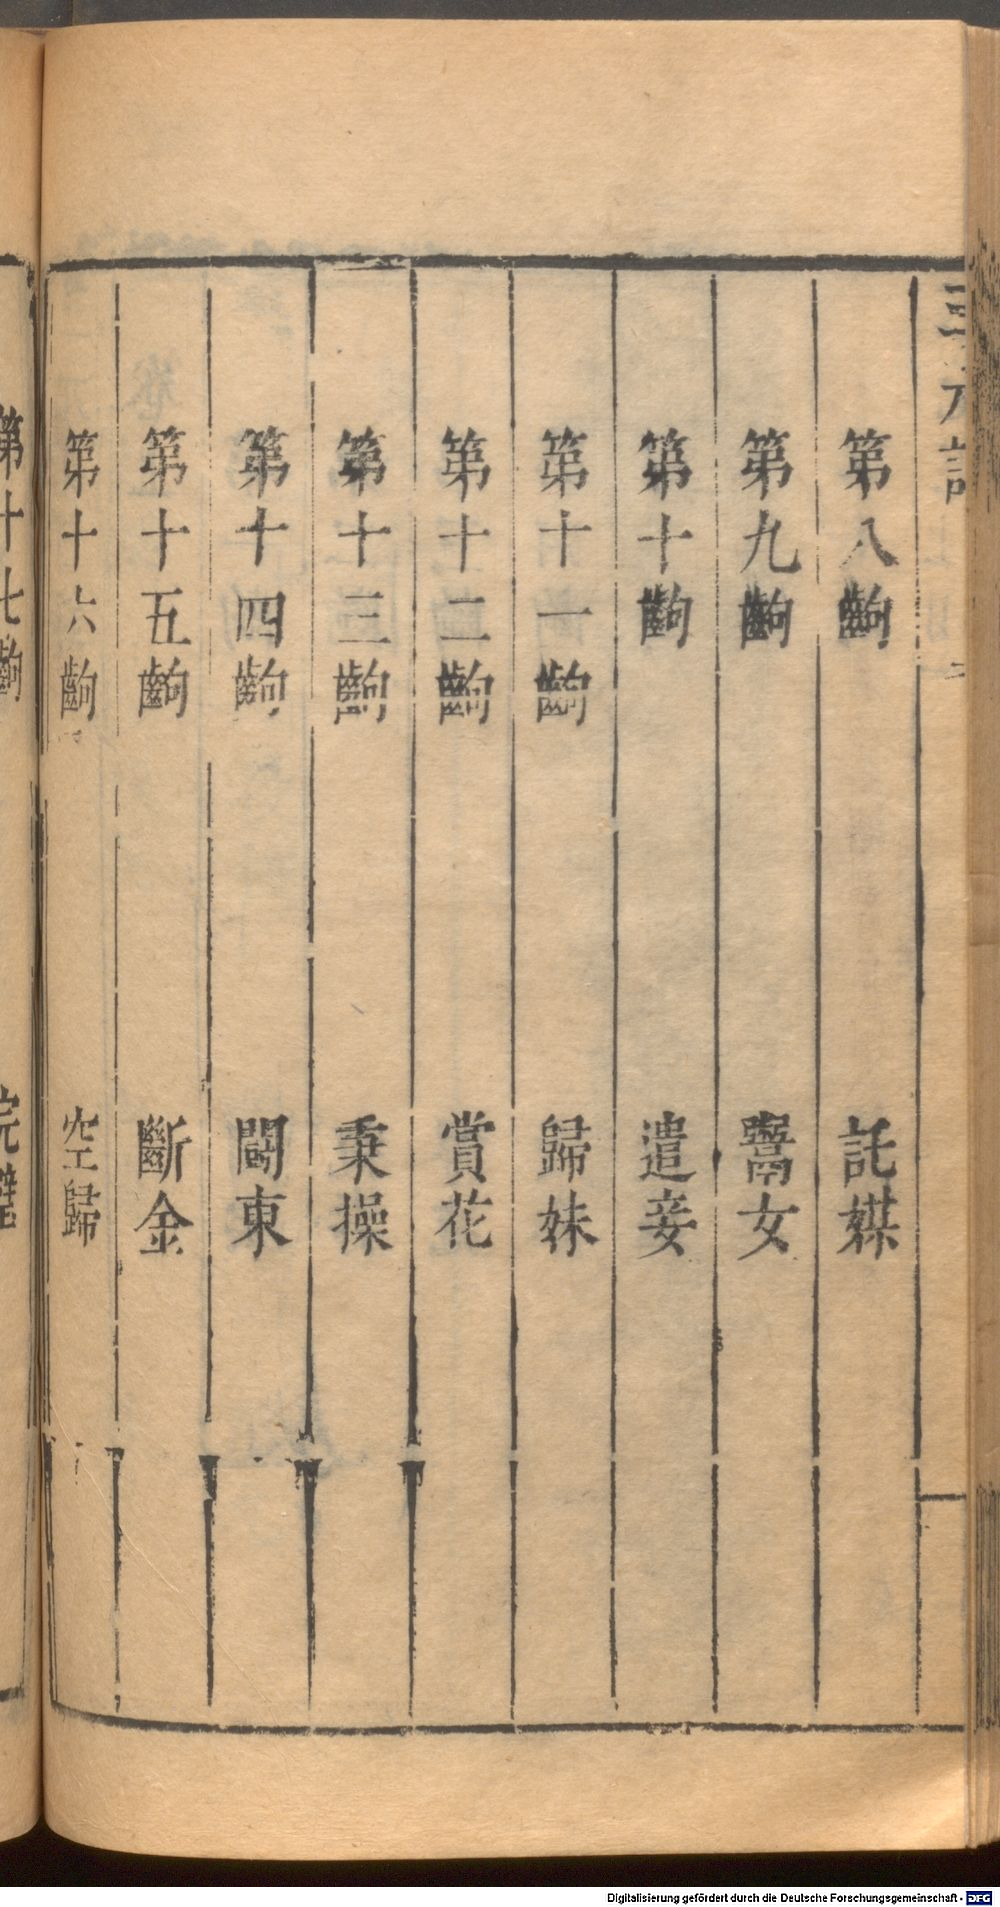 三元記
第八齣 託媒
第九齣 鬻女
第十齣 遣妾
第十一齣 歸妹
第十二齣 賞花
第十三齣 秉操
第十四齣 東
第十五齣 斷金
第十六齣 空歸
第十七齣 完璧
Digitalisierung gefördert durch die Deutsche Forschungsgemeinschaft - DFG